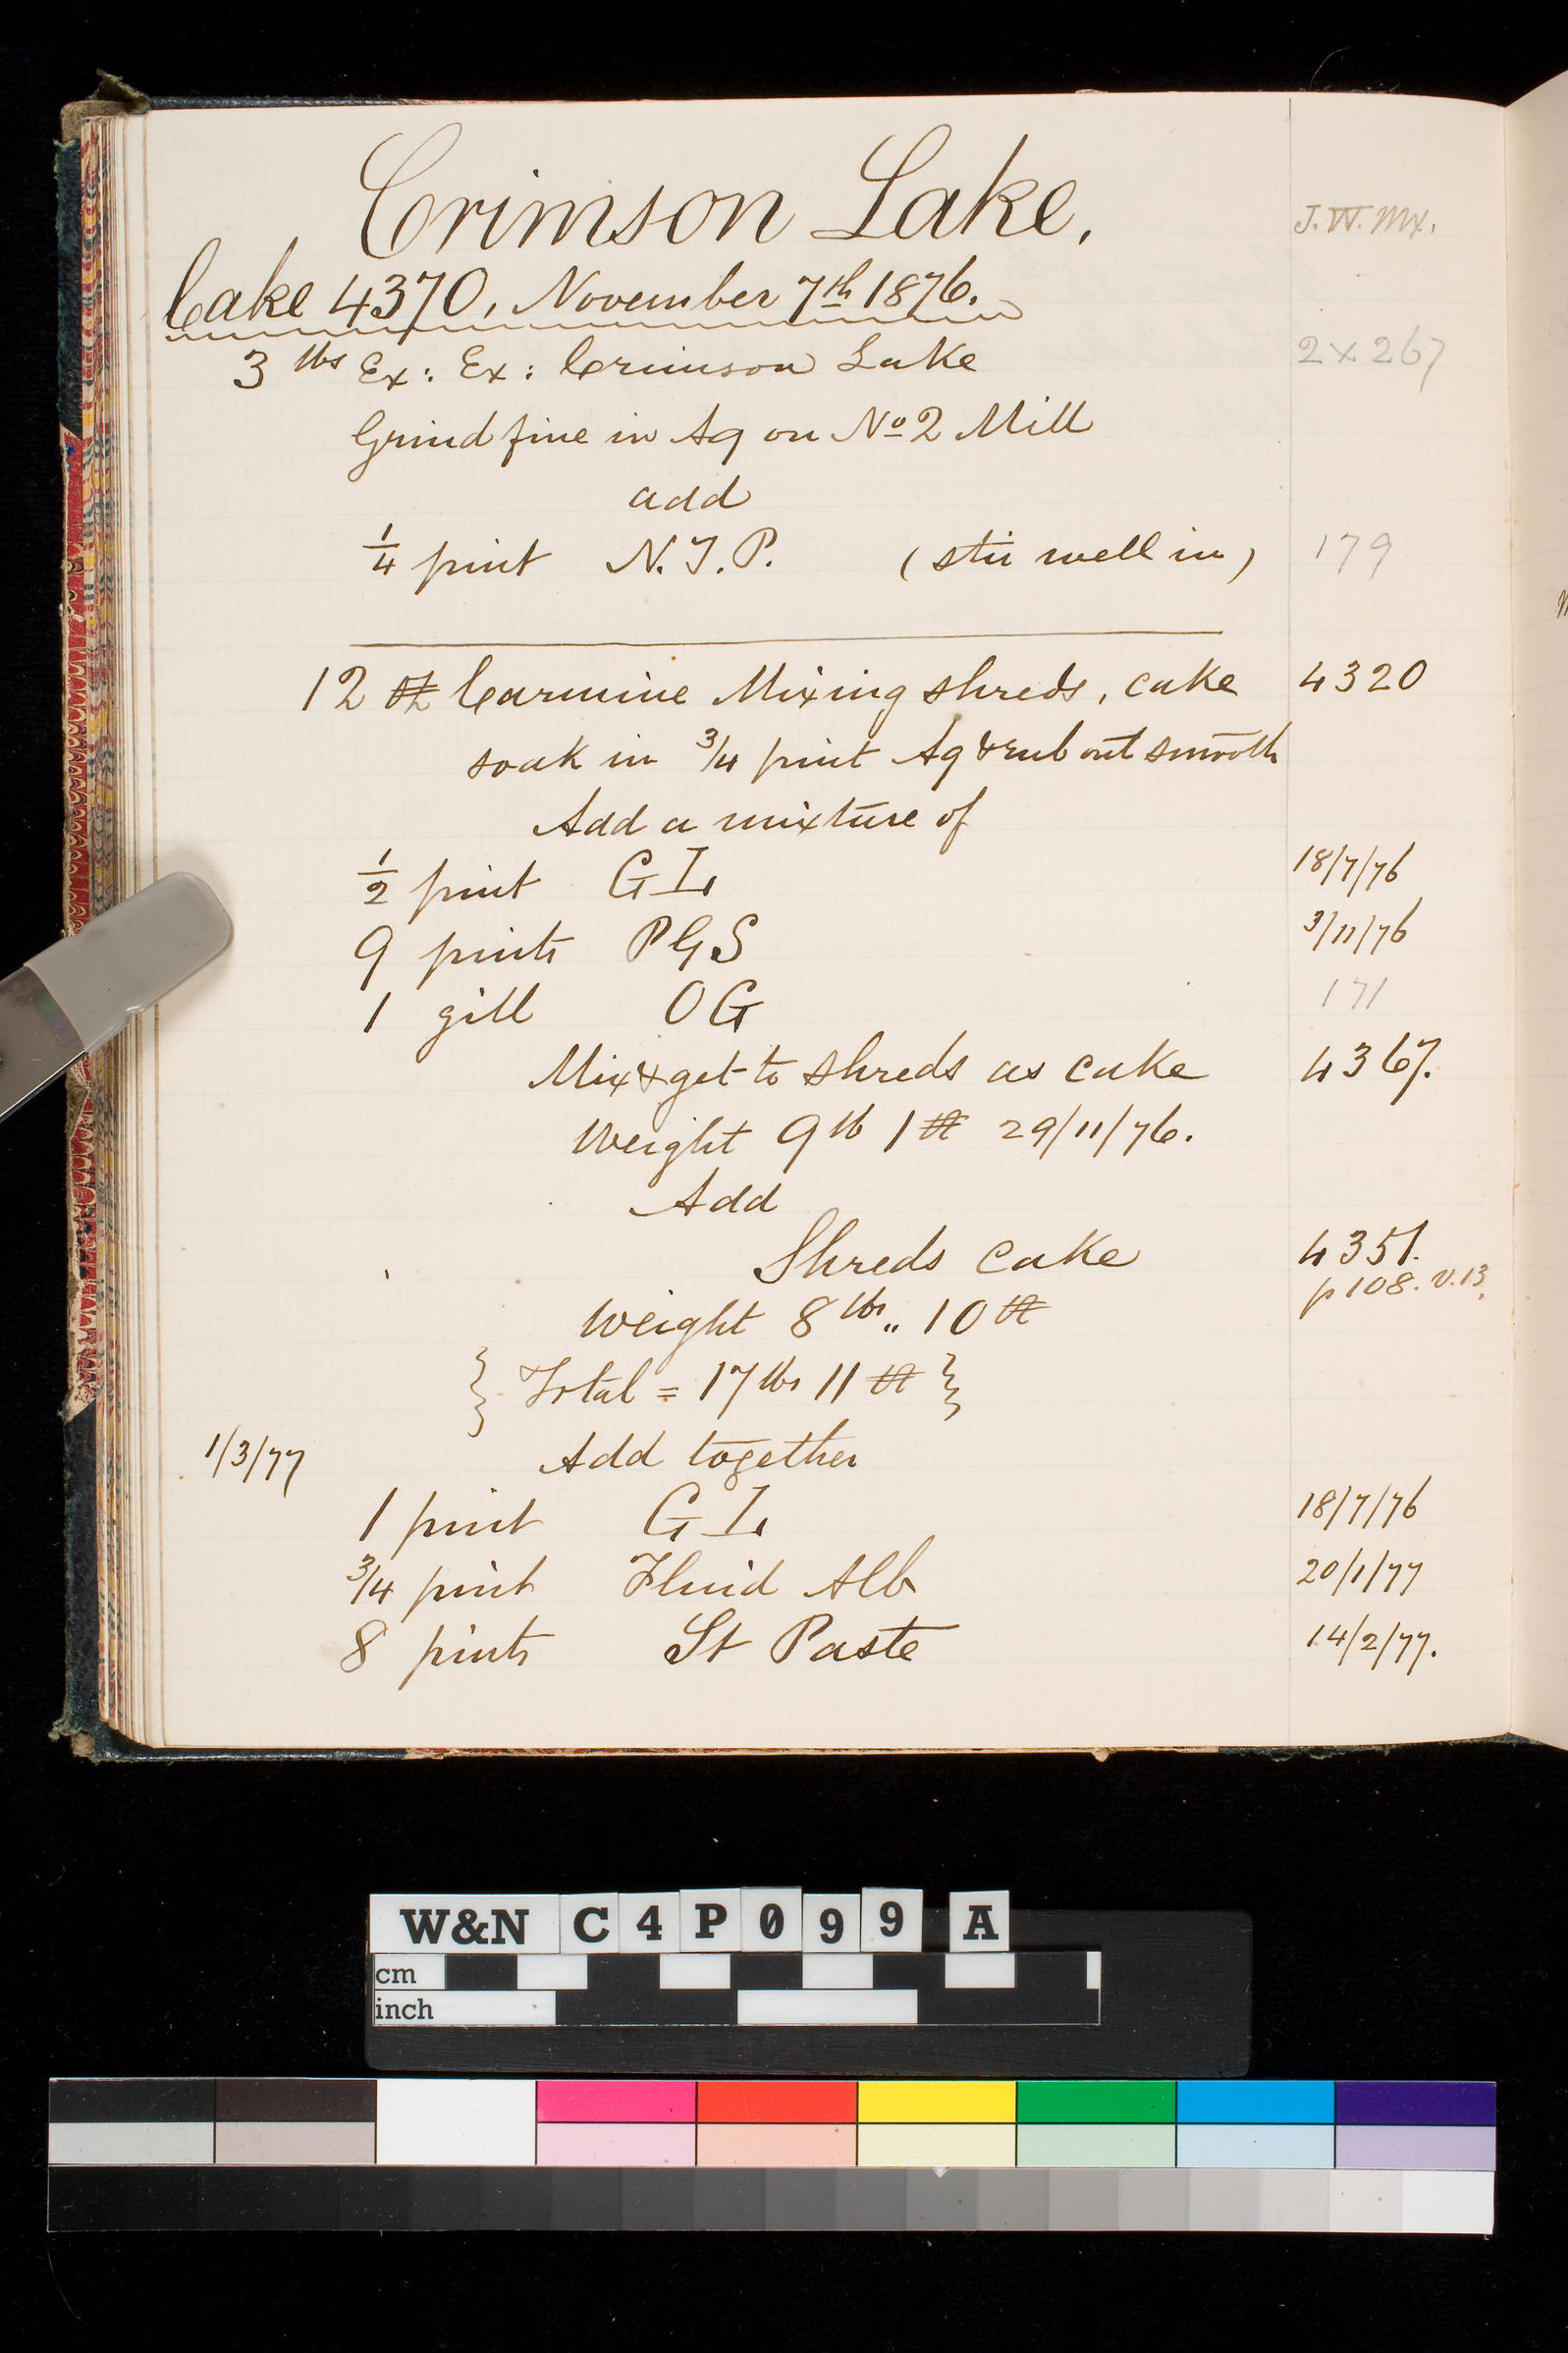 Crimson Lake.
J.W. Mx.
Cake 4370, November 7th 1876.
3 lbs Ex: Ex: Crimson Lake 2 x 267
Grind fine in Aq on No 2 Mill
add
1/4 pint N.J.P. (stir well in) 179
12 oz Carmine Mixing shreds, cake 4320
soak in 3/4 pint Aq & rub out smooth
Add a mixture of
1/2 pint GL 18/7/76
9 pints PGS 3/11/76
1 gill OG 171
Mix & get to shreds as cake 4367.
Weight 9 lb 1 oz 29/11/76.
Add
Shreds cake 4351.
p 108. v. 13.
Weight 8 lbs ,, 10 oz
{ Total = 17 lbs 11 oz }
1/3/77 Add together
1 pint GL 18/7/76
3/4 pint Fluid Alb 20/1/77
8 pints St Paste 14/2/77.
W&N C4P099 A
cm
inch